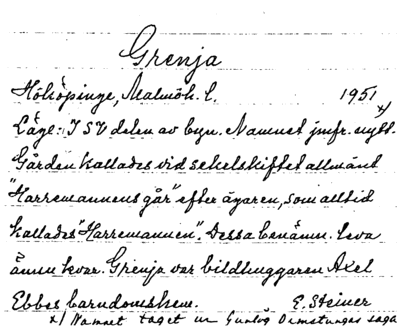 Grenja
Hököpinge, Malmöh. l. 1951
x)
Läge: I SV delen av byn. Namnet jmfr. nytt.
Gården kallades vid sekelskiftet allmänt
"Harremannens går" efter ägaren, som alltid
kallades "Harremannen". Dessa benämn. leva
ännu kvar. Grenja var bildhuggaren Axel
Ebbes barndomshem. E. Steiner
x) Namnet taget ur Gunlög Ormstungas saga